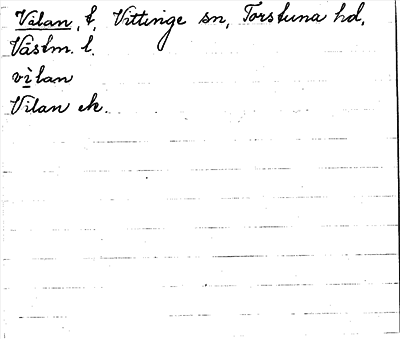 Vilan, t, Vittinge sn, Torstuna hd,
Västm. l.
vìlan
Vilan ek.